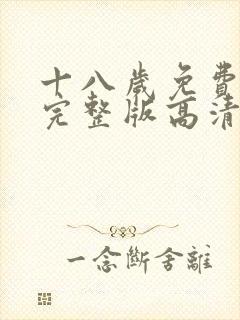 十八歲免費
完整版高清
一念斷舍離